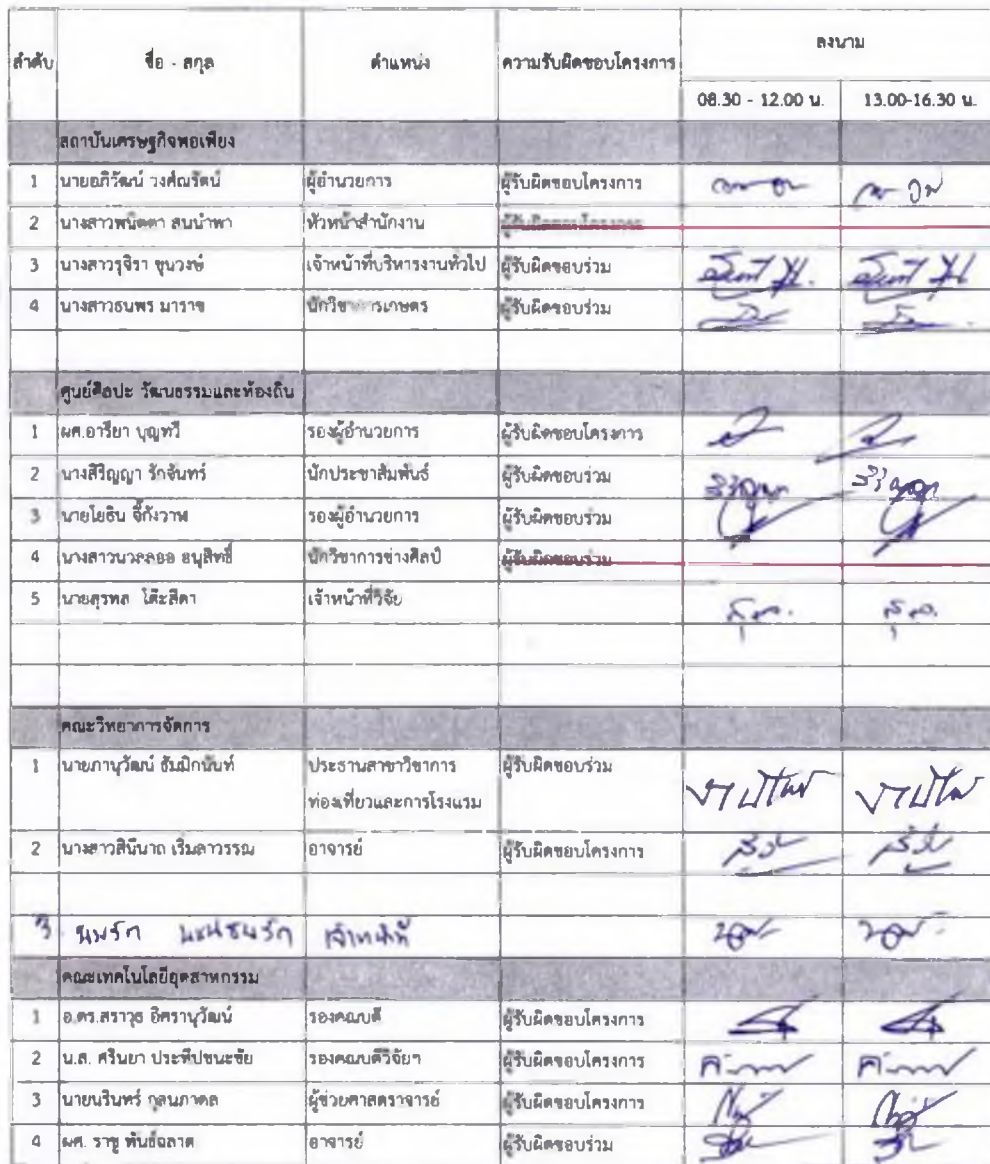 ลำดับ ชื่อ - สกุล ตำแหน่ง ความรับผิดชอบโครงการ ลงนาม
08.30 - 12.00 น. 13.00-16.30 น.
สถาบันเศรษฐกิจพอเพียง
1 นายอภิวัฒน์ วงศ์ณรัตน์ ผู้อำนวยการ ผู้รับผิดชอบโครงการ
2 นางสาวพนิตตา สนนำพา หัวหน้าสำนักงาน ผู้รับผิดชอบโครงการ
3 นางสาวรุจิรา ขุนวงษ์ เจ้าหน้าที่บริหารงานทั่วไป ผู้รับผิดชอบร่วม
4 นางสาวธนพร มาราช นักวิชาการเกษตร ผู้รับผิดชอบร่วม
ศูนย์ศิลปะ วัฒนธรรมและท้องถิ่น
1 ผศ.อารียา บุญทวี รองผู้อำนวยการ ผู้รับผิดชอบโครงการ
2 นางสิริญญา รักจันทร์ นักประชาสัมพันธ์ ผู้รับผิดชอบร่วม
3 นายโยธิน จี้กังวาฬ รองผู้อำนวยการ ผู้รับผิดชอบร่วม
4 นางสาวนวลลออ อนุสิทธิ์ นักวิชาการช่างศิลป์ ผู้รับผิดชอบร่วม
5 นายสุรพล โต๊ะสีดา เจ้าหน้าที่วิจัย
คณะวิทยาการจัดการ
1 นายภานุวัฒน์ ธัมมิกนันท์ ประธานสาขาวิชาการ ผู้รับผิดชอบร่วม
ท่องเที่ยวและการโรงแรม
2 นางสาวสินีนาถ เริ่มลาวรรณ อาจารย์ ผู้รับผิดชอบโครงการ
3 เจ้าหน้าที่
คณะเทคโนโลยีอุตสาหกรรม
1 อ.ดร.สราวุธ อิศรานุวัฒน์ รองคณบดี ผู้รับผิดชอบโครงการ
2 น.ส. ศรินยา ประทีปชนะชัย รองคณบดีวิจัยฯ ผู้รับผิดชอบโครงการ
3 นายนรินทร์ กุลนภาดล ผู้ช่วยศาสตราจารย์ ผู้รับผิดชอบโครงการ
4 ผศ. ราชู พันธ์ฉลาด อาจารย์ ผู้รับผิดชอบร่วม